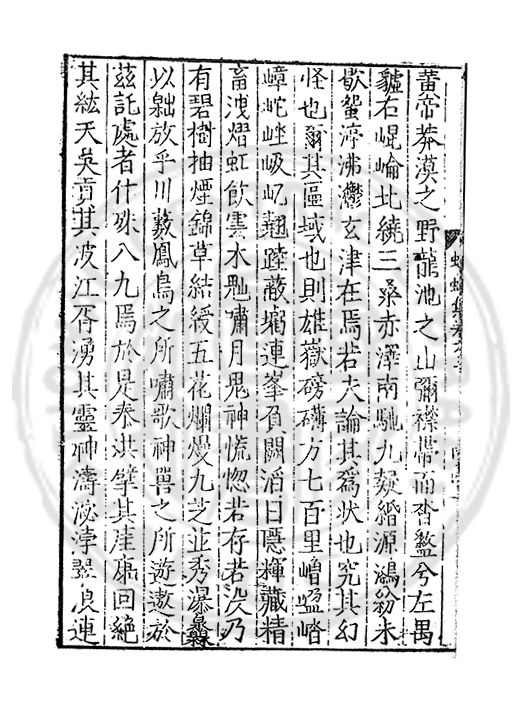 黃帝莽漠之野龍池之山彌襟帶而沓盭兮左禺
驢右崐崘北繞三桑赤澤南馳九疑湣源鴻紛未
㰤蜑渟沸灪玄津在焉若夫論其爲状也究其幻
怪也爾其區域也則雄嶽磅礡方七百里嶒㟅峈
嶂岮𡶴岋屼翹踛蔽壩連峯負闕滔日隱輝藏精
畜洩熠虹飲雲木魁嘯月鬼神慌惚若存若没乃
有碧樹抽煙錦草結綬五花爛熳九芝並秀瀑
以飿放乎川藪鳳鳥之所嘯歌神獸之所遊遨於
茲託處者什殊八九焉於是泰洪擘其崖康回絶
其紘天吳賁其波江胥湧其靈神濤泌浡翌良連